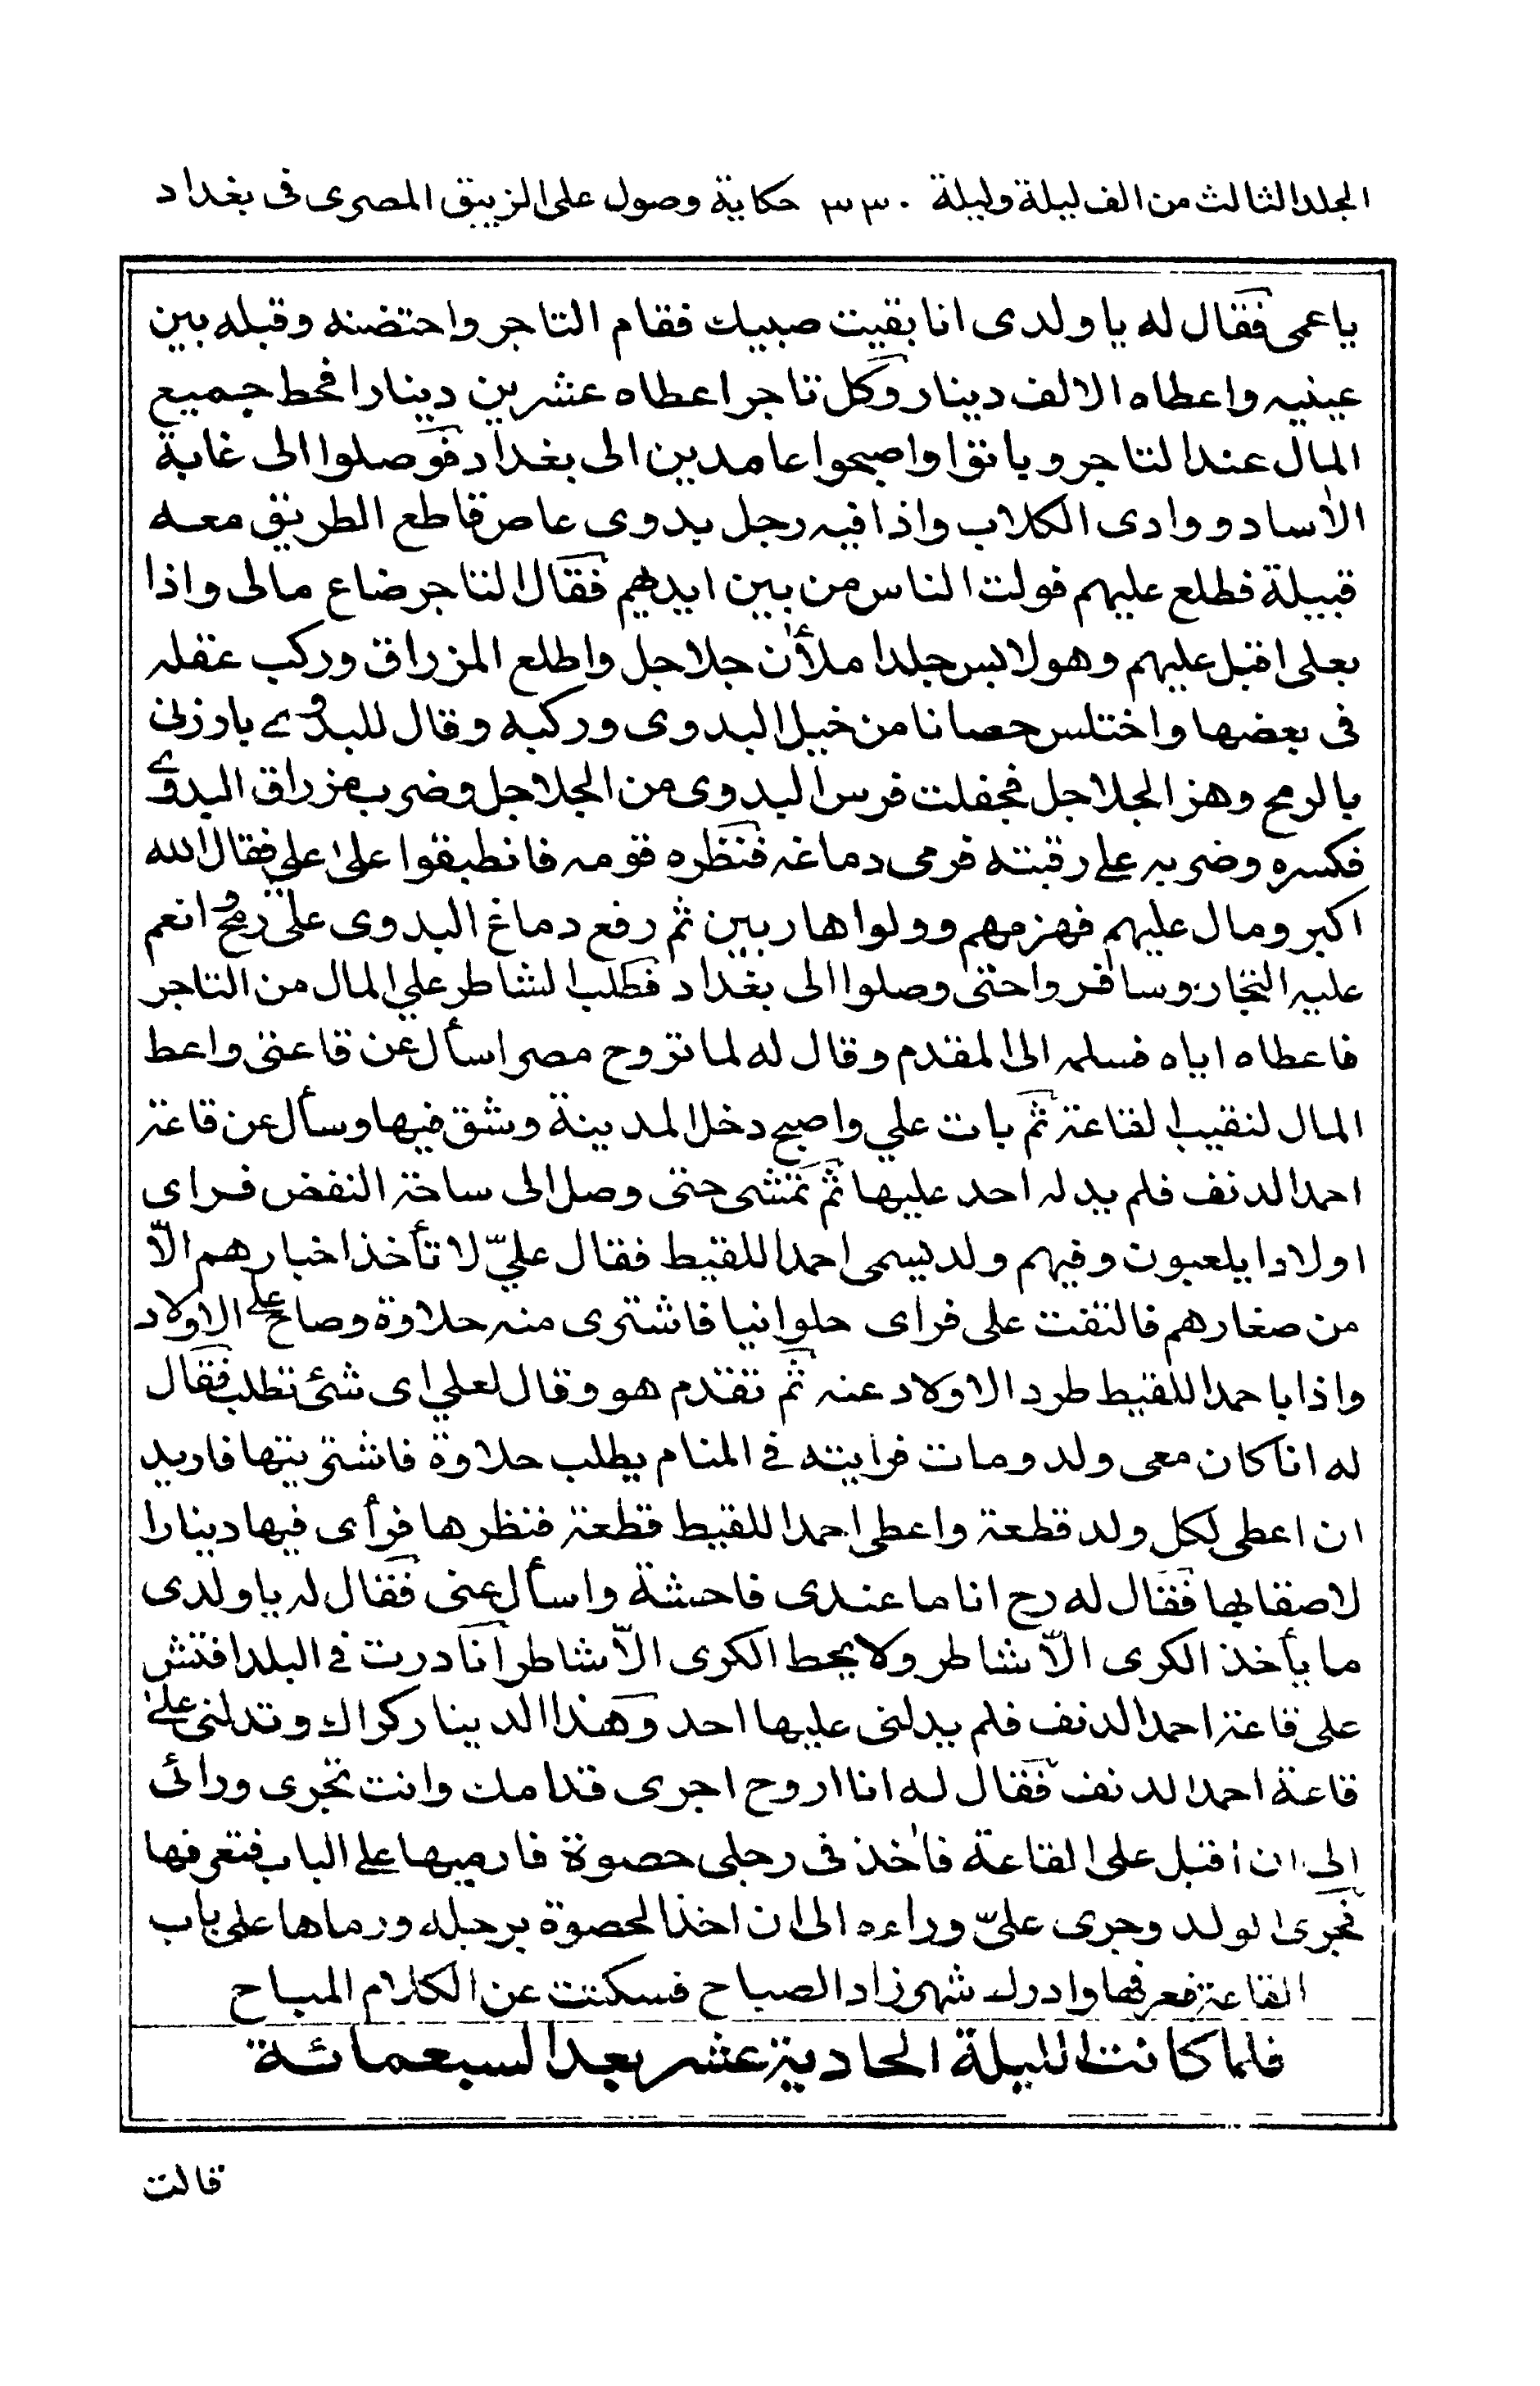 المجلد الثالث من الف ليلة وليلة ٣٣٠ حكاية وصول على الزيبق المصرى فى بغداد
ياعمى فقال له يا ولدى انا بقيت صبيك فقام التاجر واحتضنه وقبله بين
عينيه واعطاه الالف دينار وكل تاجر اعطاه عشرين دينارا فحط جميع
المال عند التاجر و باتوا واصبحوا عامدين الى بغداد فوصلوا الى غابة
الأساد ووادى الكلاب واذا فيه رجل بدوى عاص قاطع الطريق معه
قبيلة فطلع عليهم فولت الناس من بين ايديهم فقال التاجر ضاع مالى واذا
بعلى اقبل عليهم وهو لابس جلدا ملأن جلاجل واطلع المزراق وركب عقله
فى بعضها واختلس حصانا من خيل البدوى وركبه وقال للبدوى بارزنى
بالرمح وهز الجلاجل فجفلت فرس البدوى من الجلاجل وضرب مزراق البدوى
فكسره وضربه على رقبته فرمى دماغه فنظره قومه فانطبقوا على على فقال الله
اكبر ومال عليهم فهزمهم وولوا هاربين ثم رفع دماغ البدوى على رمح وانعم
عليه التجار وسافروا حتى وصلوا الى بغداد فطلب الشاطر علي المال من التاجر
فاعطاه اياه فسلمه الى المقدم وقال له لما تروح مصر اسأل عن قاعتى واعط
المال لنقيب القاعة ثم بات علي واصبح دخل المدينة وشق فيها وسأل عن قاعة
احمد الدنف فلم يدله احد عليها ثم تمشى حتى وصل الى ساحة النفض فراى
اولادا يلعبون وفيهم ولد يسمى احمد اللقيط فقال عليّ لا تأخذ اخبارهم الّا
من صغارهم فالتفت على فراى حلوانيا فاشترى منه حلاوة وصاح على الاولاد
واذا باحمد اللقيط طرد الاولاد عنه ثم تقدم هو وقال لعلي اى شئ تطلب فقال
له انا كان معى ولد ومات فرايته فى المنام يطلب حلاوة فاشتريتها فاريد
ان اعطى لكل ولد قطعة واعطى احمد اللقيط قطعة فنظرها فرأى فيها دينارا
لاصقا بها فقال له رح انا ما عندى فاحشة واسأل عنى فقال له يا ولدى
ما يأخذ الكرى الّا شاطر ولا يحط الكرى الّا شاطر انا درت فى البلد افتش
على قاعة احمد الدنف فلم يدلنى عليها احد وهذا الدينار كراك وتدلنى على
قاعة احمد الدنف فقال له انا اروح اجرى قدامك وانت تجرى ورائى
الى ان اقبل على القاعة فأخذ فى رجلى حصوة فارميها على الباب فتعرفها
فجرى الولد وجرى عليّ وراءه الى ان اخذ الحصوة برجله ورماها على باب
القاعة فعرفها وادرك شهرزاد الصباح فسكتت عن الكلام المباح
فلما كانت الليلة الحادية عشر بعد السبعمائة
قالت